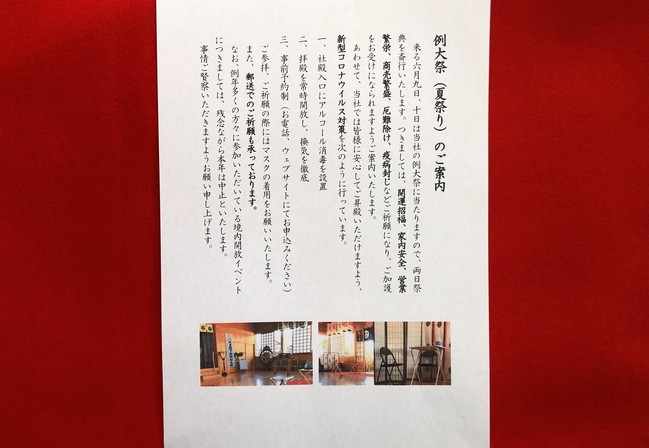 例大祭（夏祭り）のご案内
来る六月九日、十日は当社の例大祭に当たりますので、両日祭
典を斎行いたします。つきましては、開運招福、家内安全、営業
繁栄、商売繁盛、厄難除け、疫病封じなどご祈願になり、ご加護
をお受けになられますようご案内いたします。
あわせて、当社では皆様に安心してご昇殿いただけますよう、
新型コロナウイルス対策を次のように行っています。
一、社殿入口にアルコール消毒を設置
二、拝殿を常時開放し、換気を徹底
三、事前予約制（お電話、ウェブサイトにてお申込みください）
ご参拝、ご祈願の際にはマスクの着用をお願いいたします。
また、郵送でのご祈願も承っております。
なお、例年多くの方々に参加いただいている境内開放イベント
につきましては、残念ながら本年は中止といたします。
事情ご賢察いただきますようお願い申し上げます。